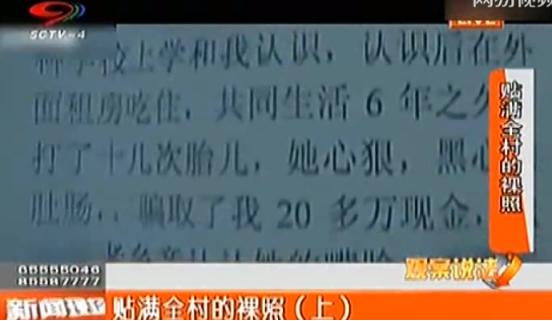 SCTV-4
网易视频
LIVE
科学校上学和我认识，认识后在外
面租房吃住，共同生活 6 年之久
打了十几次胎儿，她心狠，黑心
肚肠，骗取了我 20 多万现金，
贴满全村的裸照
观察说法
85555046
85587777
新闻现场
贴满全村的裸照（上）